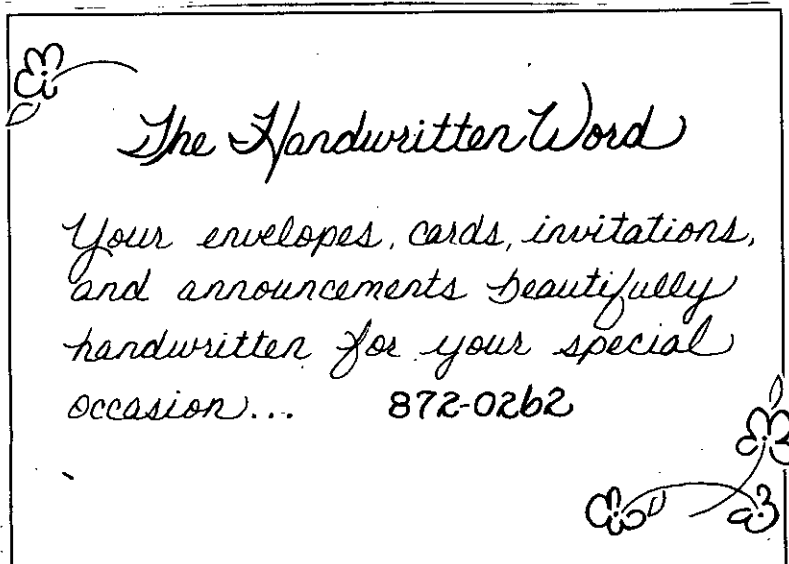 The Handwritten Word
Your envelopes, cards, invitations,
and announcements beautifully
handwritten for your special
occasion... 872-0262